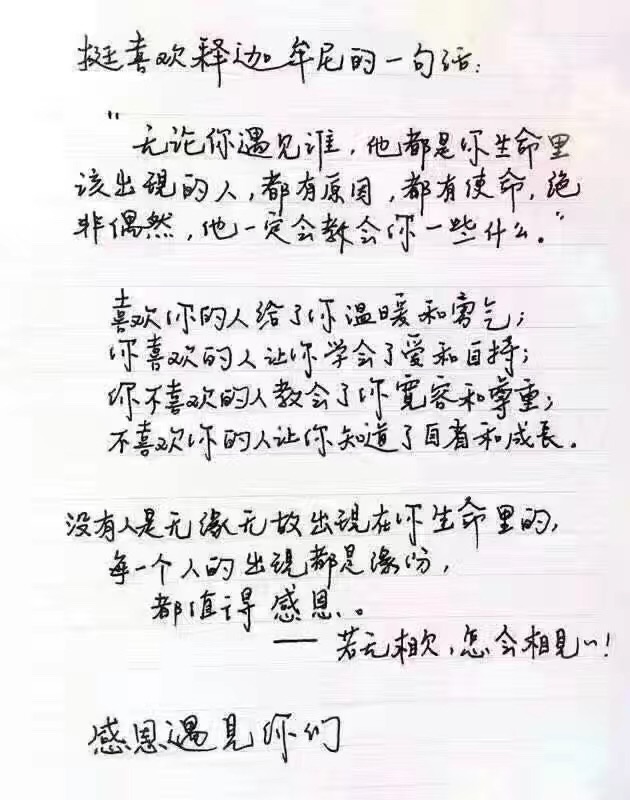 挺喜欢释迦牟尼的一句话：
“无论你遇见谁，他都是你生命里
该出现的人，都有原因，都有使命，绝
非偶然，他一定会教会你一些什么。”
喜欢你的人给了你温暖和勇气；
你喜欢的人让你学会了爱和自持；
你不喜欢的人教会了你宽容和尊重；
不喜欢你的人让你知道了自省和成长。
没有人是无缘无故出现在你生命里的，
每一个人的出现都是缘份，
都值得感恩。
——若无相欠，怎会相见！
感恩遇见你们